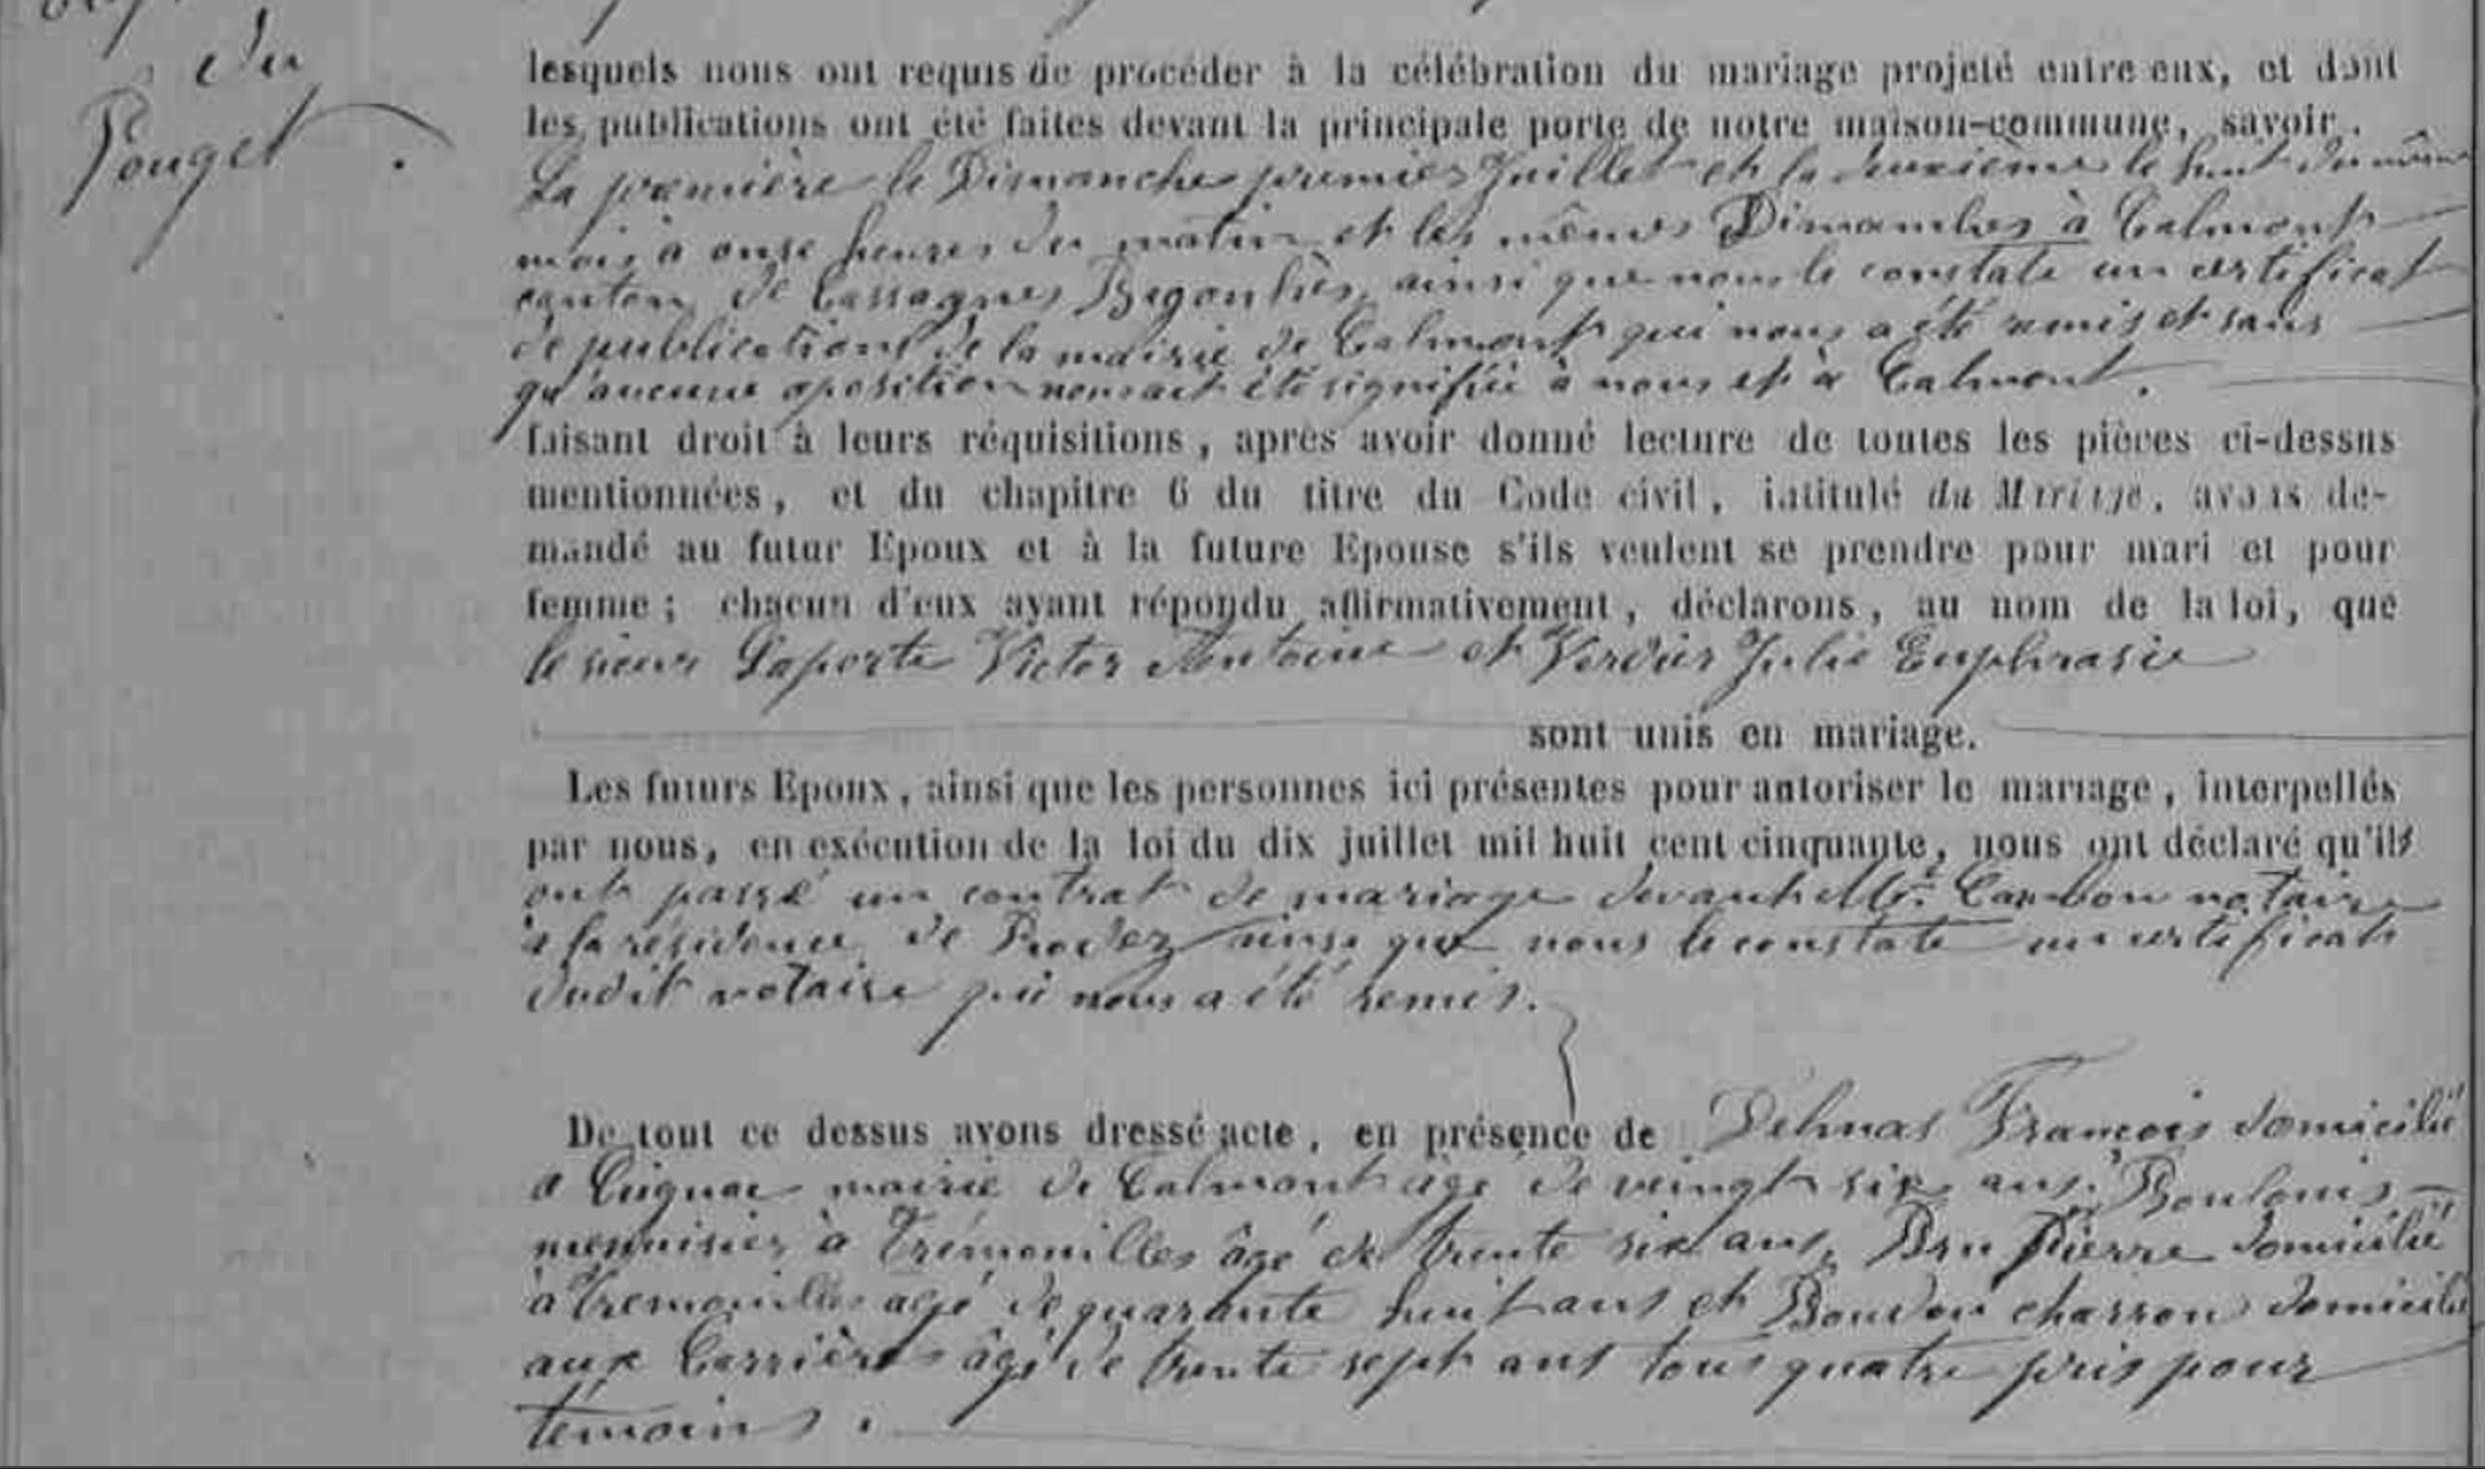 du
Pouget.
lesquels nous ont requis de procéder à la célébration du mariage projeté entre eux, et dont
les publications ont été faites devant la principale porte de notre maison-commune, savoir.
La première le Dimanche premier Juillet et la deuxième le huit du même
mois à onze heures du matin et les mêmes Dimanches à Calmont
canton de Cassagnes Begonhès, ainsi que nous le constate un certificat
de publications de la mairie de Calmont qui nous a été remis et sans
qu'aucune oposition nous ait été signifiée à nous et à Calmont.
faisant droit à leurs réquisitions, après avoir donné lecture de toutes les pièces ci-dessus
mentionnées, et du chapitre 6 du titre du Code civil, intitulé du Mariage, avons de-
mandé au futur Epoux et à la future Epouse s'ils veulent se prendre pour mari et pour
femme; chacun d'eux ayant répondu affirmativement, déclarons, au nom de la loi, que
le sieur Laporte Victor Antoine et Verdier Julie Euphrasie
sont unis en mariage.
Les futurs Epoux, ainsi que les personnes ici présentes pour autoriser le mariage, interpellés
par nous, en exécution de la loi du dix juillet mil huit cent cinquante, nous ont déclaré qu'ils
ont passé un contrat de mariage devant Mr. Cambon notaire
à la résidence de Rodez ainsi que nous le constate un certificat
dudit notaire qui nous a été remis.
De tout ce dessus avons dressé acte, en présence de Delmas François domicilié
à mairie de Calmont âgé de veingt six ans, Boulouis
menuisier à Trémouilles âgé de trente six ans, Bru Pierre domicilié
à Tremouilles agé de quarante huit ans et Boudou charron domicilié
aux Carrières âgé de trente sept ans tous quatre pris pour
témoins.